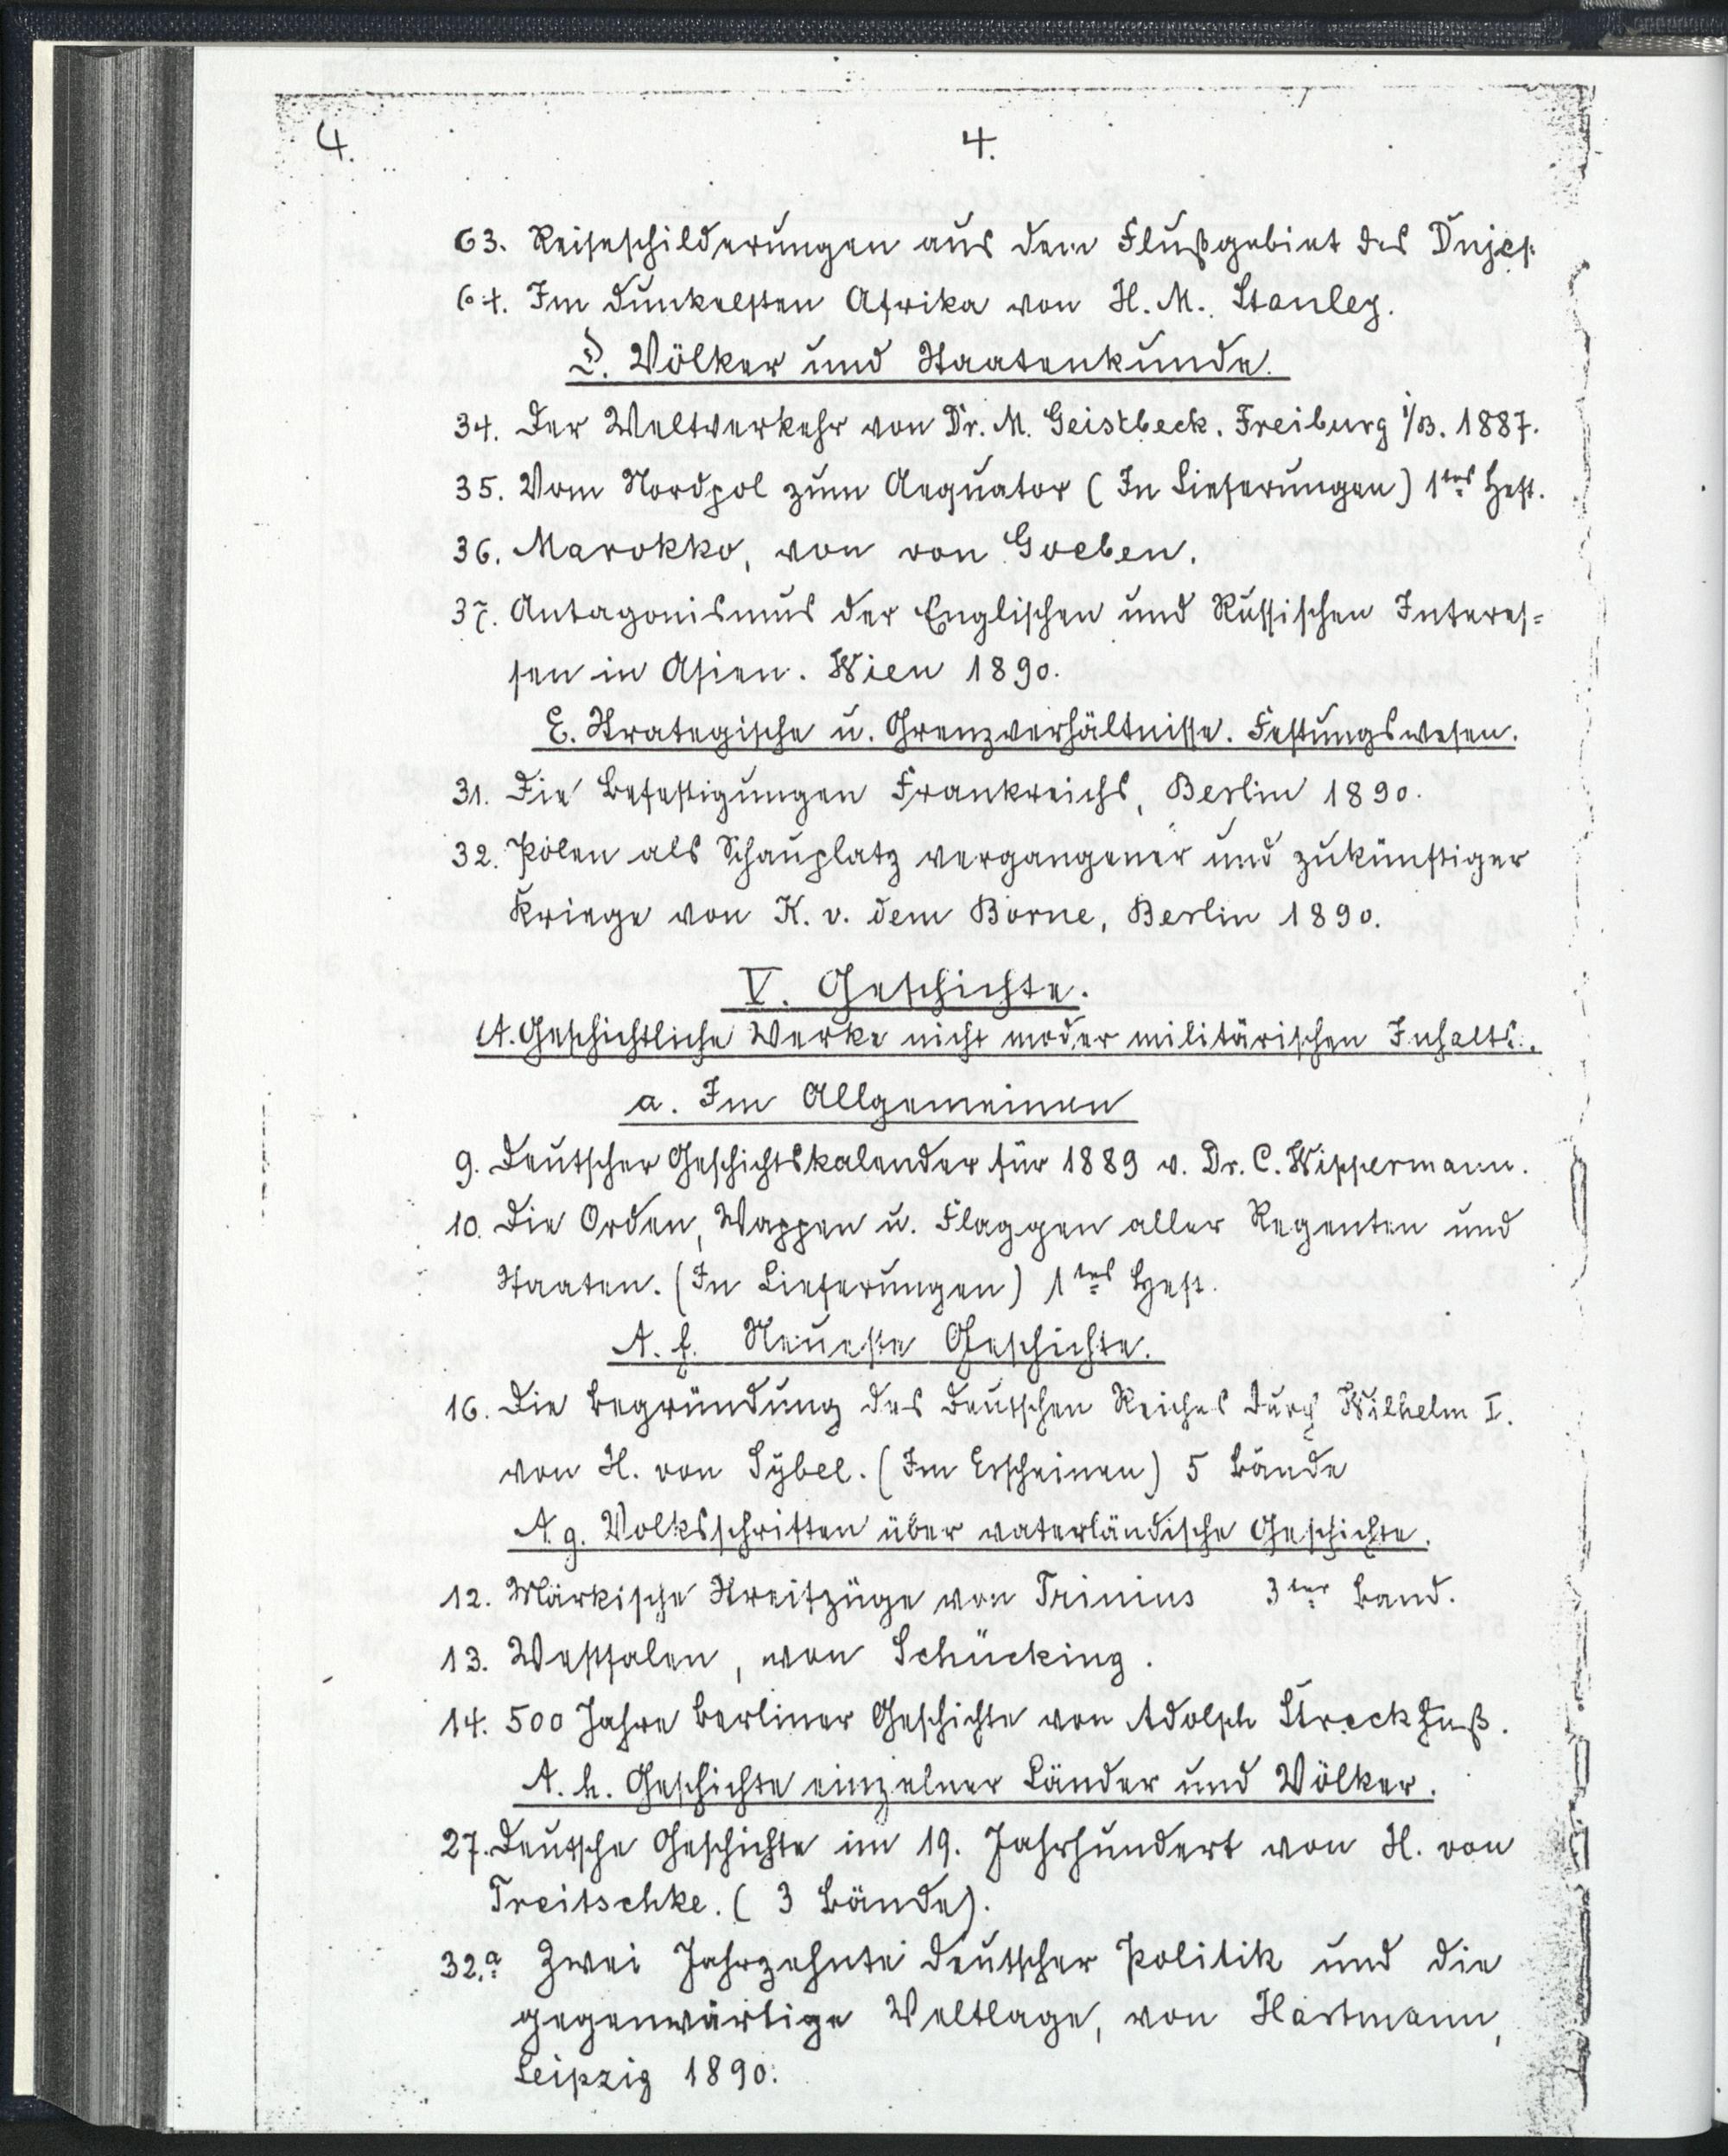 4. 4.
63. Reiseschilderungen aus dem Flußgebiet des Dnjep.
64. Im dunkelsten Afrika von H. M. Stanley.
D. Völker und Staatenkunde.
34. Der Weltverkehr von Dr. M. Geistbeck. Freiburg i/B. 1887.
35. Vom Nordpol zum Aequator (In Lieferungen) 1tes Heft.
36. Marokko, von von Goeben.
37. Antagonismus der Englischen und Russischen Interes-
sen in Asien. Wien 1890.
E. Strategische u. Grenzverhältnisse. Festungswesen.
31. Die Befestigungen Frankreichs, Berlin 1890.
32. Polen als Schauplatz vergangener und zukünftiger
Kriege von K. v. dem Borne, Berlin 1890.
V. Geschichte.
A. Geschichtliche Werke nicht moder militärischen Inhalts.
a. Im Allgemeinen
9. Deutscher Geschichtskalender für 1889 v. Dr. C. Wippermann.
10. Die Orden, Wappen u. Flaggen aller Regenten und
Staaten. (In Lieferungen) 1tes Heft.
A. f. Neueste Geschichte.
16. Die Begründung des Deutschen Reiches durch Wilhelm I.
von H. von Sybel. (Im Erscheinen) 5 Bände
A. g. Volksschriften über vaterländische Geschichte.
12. Märkische Streifzüge von Trinius 3ter Band.
13. Westfalen, von Schücking.
14. 500 Jahre Berliner Geschichte von Adolph Streckfuß.
A. h. Geschichte einzelner Länder und Völker.
27. Deutsche Geschichte im 19. Jahrhundert von H. von
Treitschke. (3 Bände).
32.a Zwei Jahrzehnte deutscher Politik und die
gegenwärtige Weltlage, von Hartmann,
Leipzig 1890.